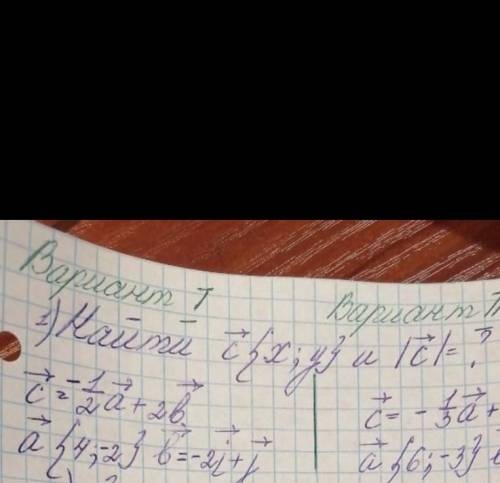 Вариант I
1) Найти c⃗{x; y} и |c⃗|=?
c⃗ = -1/2 a⃗ + 2b⃗
a⃗{4; -2} b⃗ = -2i⃗ + j⃗
Вариант II
c⃗ = - 1/3 a⃗ +
a⃗{6; -3}